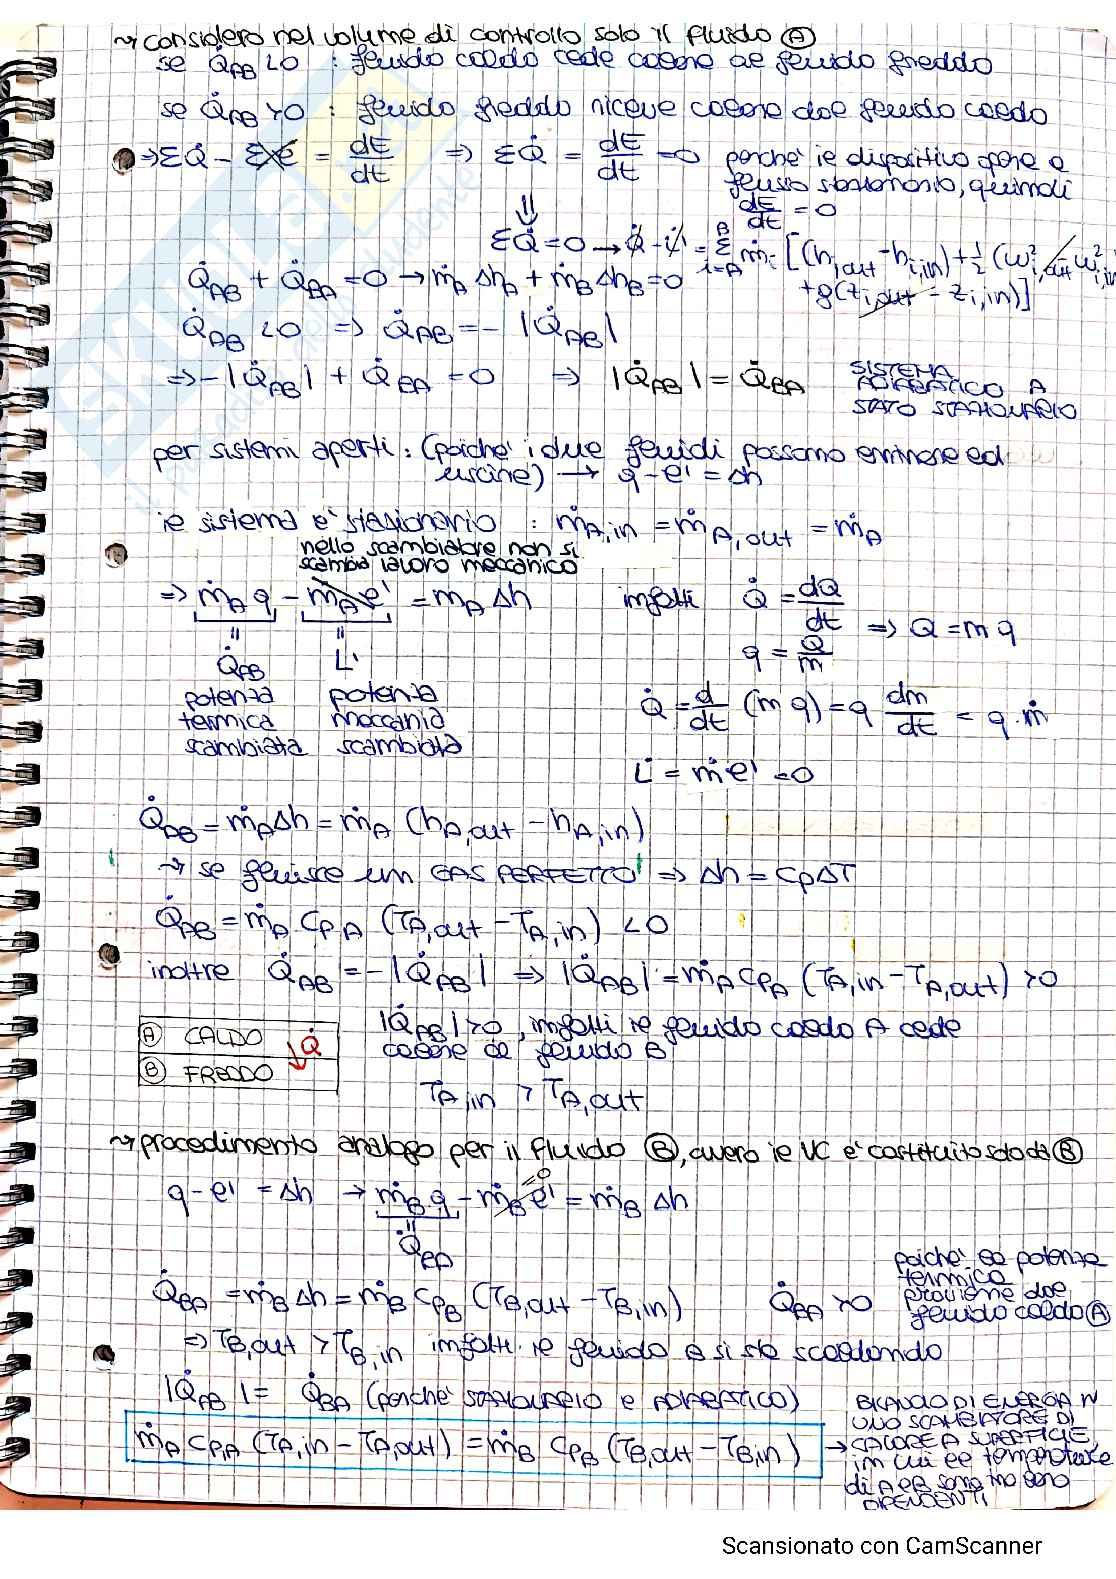 ~> considero nel volume di controllo solo il fluido Ⓐ
se Q̇AB < 0 : fluido caldo cede calore al fluido freddo
se Q̇AB > 0 : fluido freddo riceve calore dal fluido caldo
⇒ ΣQ̇ - Σe' = dE/dt ⇒ ΣQ̇ = dE/dt = 0 perché il dispositivo opera a
flusso stazionario, quindi
dE/dt = 0
ΣQ̇ = 0 → Q̇ - L' = Σ(i=A, B) ṁi [(hi,out - hi,in) + 1/2 (ω²i,out - ω²i,in)
+ g(zi,out - zi,in)]
Q̇AB + Q̇BA = 0 → ṁA ΔhA + ṁB ΔhB = 0
Q̇AB < 0 ⇒ Q̇AB = - |Q̇AB|
⇒ -|Q̇AB| + Q̇BA = 0 ⇒ |Q̇AB| = Q̇BA
SISTEMA
ADIABATICO A
STATO STAZIONARIO
per sistemi aperti : (poiché i due fluidi possono entrare ed
uscire) → q - e' = Δh
il sistema e' stazionario : ṁA,in = ṁA,out = ṁA
nello scambiatore non si
scambia lavoro meccanico
⇒ ṁA q - ṁA e' = ṁA Δh infatti Q̇ = dQ/dt ⇒ Q = m q
q = Q/m
Q̇AB L'
potenza potenza
termica meccania
scambiata scambiata
Q̇ = d/dt (m q) = q dm/dt = q · ṁ
L̇ = ṁe' = 0
Q̇AB = ṁA Δh = ṁA (hA,out - hA,in)
~> se fluisce un GAS PERFETTO ⇒ Δh = cpΔT
Q̇AB = ṁA cpA (TA,out - TA,in) < 0
inoltre Q̇AB = -|Q̇AB| ⇒ |Q̇AB| = ṁA cpA (TA,in - TA,out) > 0
Ⓐ CALDO Q̇
Ⓑ FREDDO
|Q̇AB| > 0, infatti il fluido caldo A cede
calore al fluido B
TA,in > TA,out
~> procedimento analogo per il fluido Ⓑ, ovvero il VC e' costituito solo da Ⓑ
q - e' = Δh → ṁB q - ṁB e' = ṁB Δh
=0
Q̇BA
Q̇BA = ṁB Δh = ṁB cpB (TB,out - TB,in) Q̇BA > 0
poiché la potenza
termica
proviene dal
fluido caldo Ⓐ
⇒ TB,out > TB,in infatti il fluido B si sta scaldando
|Q̇AB| = Q̇BA (perché STAZIONARIO e ADIABATICO)
ṁA cpA (TA,in - TA,out) = ṁB cpB (TB,out - TB,in)
→ BILANCIO DI ENERGIA IN
UNO SCAMBIATORE DI
CALORE A SUPERFICIE,
in cui le temperature
di A e B sono tra loro
DIPENDENTI
Scansionato con CamScanner